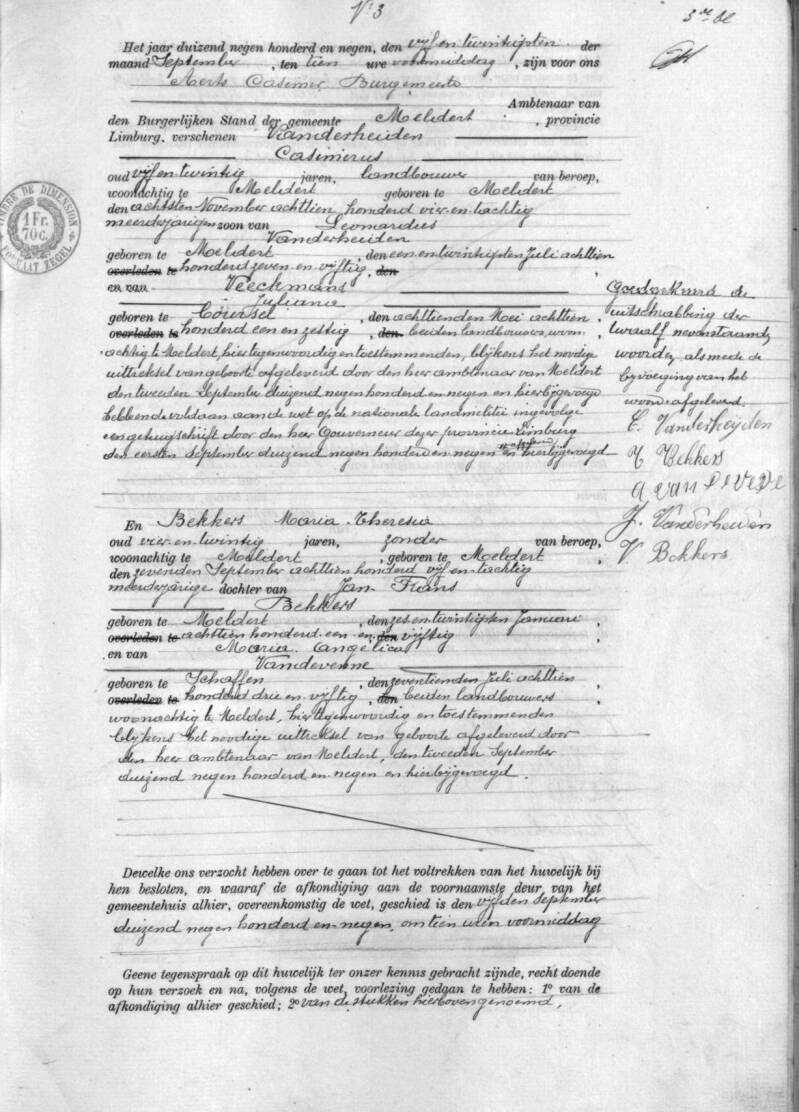 N: 3
3de bl
Het jaar duizend negen honderd en negen, den vijf en twintigsten der
maand September, ten tien ure voormiddag, zijn voor ons
Aerts Casimir Burgemeester
Ambtenaar van
den Burgerlijken Stand der gemeente Meldert, provincie
Limburg, verschenen Vanderheiden
Casimirus
oud vijf en twintig jaren, landbouwer van beroep,
woonachtig te Meldert geboren te Meldert
den achtsten November achttien honderd vier en tachtig
meerderjarigen zoon van Leonardus
Vanderheiden
geboren te Meldert, den een en twintigsten Juli achttien
overleden te honderd zeven en vijftig, den
en van Veeckmans
Juliana
geboren te Coursel, den achttienden Mei achttien
overleden te honderd een en zestig, den beiden landbouwers, woon
achtig te Meldert, hier tegenwoordig en toestemmenden, blijkens het noodige
uittreksel van geboorte afgeleverd door den heer ambtenaar van Meldert
den tweeden September duizend negen honderd en negen en hierbijgevoegd
hebbende voldaan aan de wet op de nationale landmilitie ingevolge
een getuigschrift door den heer Gouverneur dezer provincie Limburg
den eersten September duizend negen honderd en negen afgeleverd en hierbijgevoegd
Goedgekeurd de
uitschrabbing der
twaalf nevenstaande
woorden, alsmede de
bijvoeging van het
woord afgeleverd.
C. Vanderheyden
T Bekkers
J. Vanderheiden
V Bekkers
En Bekkers Maria Theresia
oud vier en twintig jaren, zonder van beroep,
woonachtig te Meldert, geboren te Meldert
den zevenden September achttien honderd vijf en tachtig
meerderjarige dochter van Jan Frans
Bekkers
geboren te Meldert, den zes en twintigsten Januari
overleden te achttien honderd een en den vijftig
en van Maria Angelica
Vandevenne
geboren te Schaffen, den zeventienden Juli achttien
overleden te honderd drie en vijftig, den beiden landbouwers
woonachtig te Meldert, hier tegenwoordig en toestemmenden
blijkens het noodige uittreksel van geboorte afgeleverd door
den heer ambtenaar van Meldert, den tweeden September
duizend negen honderd en negen en hierbijgevoegd.
Dewelke ons verzocht hebben over te gaan tot het voltrekken van het huwelijk bij
hen besloten, en waaraf de afkondiging aan de voornaamste deur van het
gemeentehuis alhier, overeenkomstig de wet, geschied is den vijfden September
duizend negen honderd en negen, om tien uren voormiddag
Geene tegenspraak op dit huwelijk ter onzer kennis gebracht zijnde, recht doende
op hun verzoek en na, volgens de wet, voorlezing gedaan te hebben: 1° van de
afkondiging alhier geschied; 2° van de stukken hierboven genoemd.
TIMBRE DE DIMENSION
1 Fr.
70 C.
FORMAAT ZEGEL